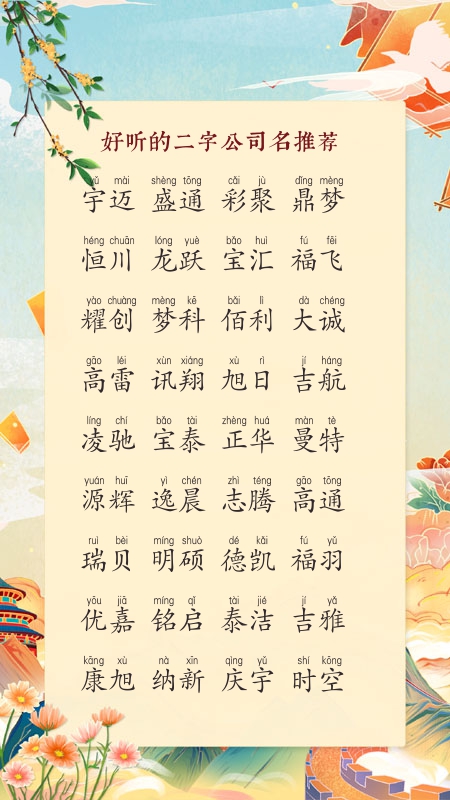 好听的二字公司名推荐
yǔ mài shèng tōng cǎi jù dǐng mèng
宇迈 盛通 彩聚 鼎梦
héng chuān lóng yuè bǎo huì fú fēi
恒川 龙跃 宝汇 福飞
yào chuàng mèng kē bǎi lì dà chéng
耀创 梦科 佰利 大诚
gāo léi xùn xiáng xù rì jí háng
高雷 讯翔 旭日 吉航
líng chí bǎo tài zhèng huá màn tè
凌驰 宝泰 正华 曼特
yuán huī yì chén zhì téng gāo tōng
源辉 逸晨 志腾 高通
ruì bèi míng shuò dé kǎi fú yǔ
瑞贝 明硕 德凯 福羽
yōu jiā míng qǐ tài jié jí yǎ
优嘉 铭启 泰洁 吉雅
kāng xù nà xīn qìng yǔ shí kōng
康旭 纳新 庆宇 时空